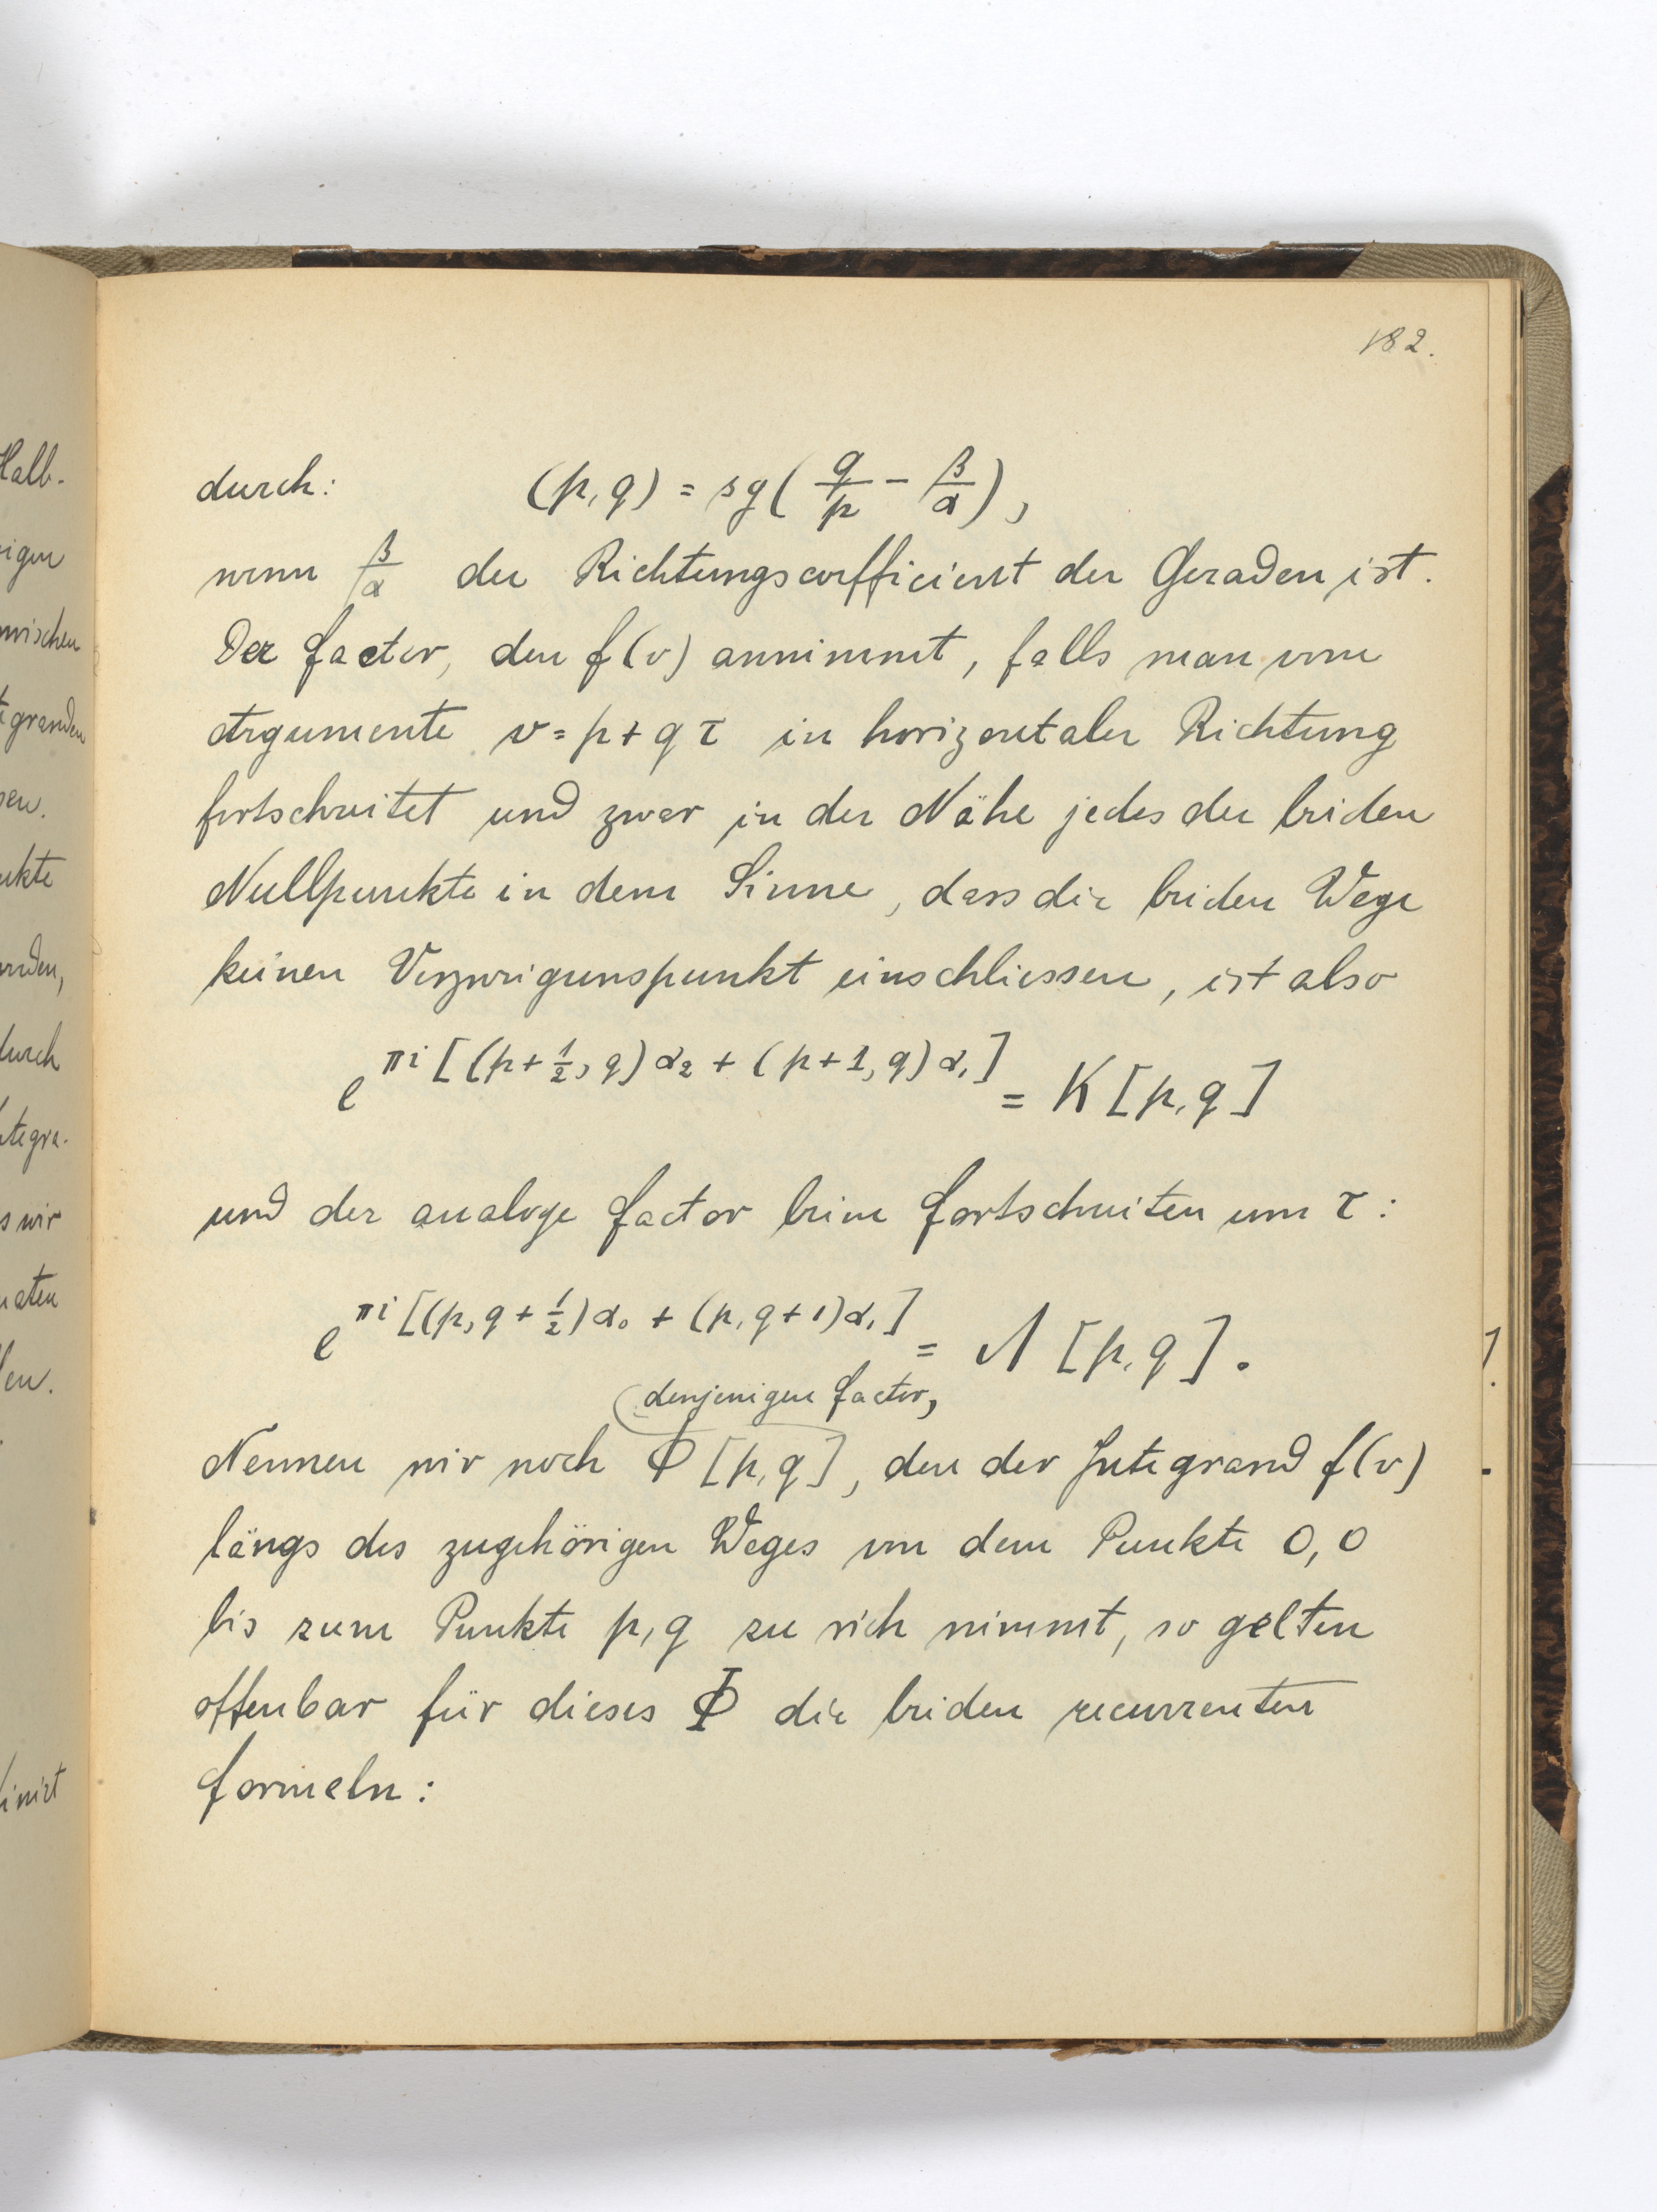 182.
durch: (p, q) = sg( q/p - β/α ),
wenn β/α der Richtungscoefficient der Geraden ist.
Der Factor, den f(v) annimmt, falls man vom
Argumente v = p + q τ in horizontaler Richtung
fortschreitet und zwar in der Nähe jedes der beiden
Nullpunkte in dem Sinne, dass die beiden Wege
keinen Verzweigunspunkt einschliessen, ist also
e^{πi [(p + 1/2, q) α₂ + (p + 1, q) α₁]} = K [p, q]
und der analoge Factor beim Fortschreiten um τ:
e^{πi [(p, q + 1/2) α₀ + (p, q + 1) α₁]} = Λ [p, q].
denjenigen Factor,
Nennen wir noch Φ [p, q], den der Integrand f(v)
längs des zugehörigen Weges von dem Punkte 0, 0
bis zum Punkte p, q zu sich nimmt, so gelten
offenbar für dieses Φ die beiden recurrenten
Formeln: